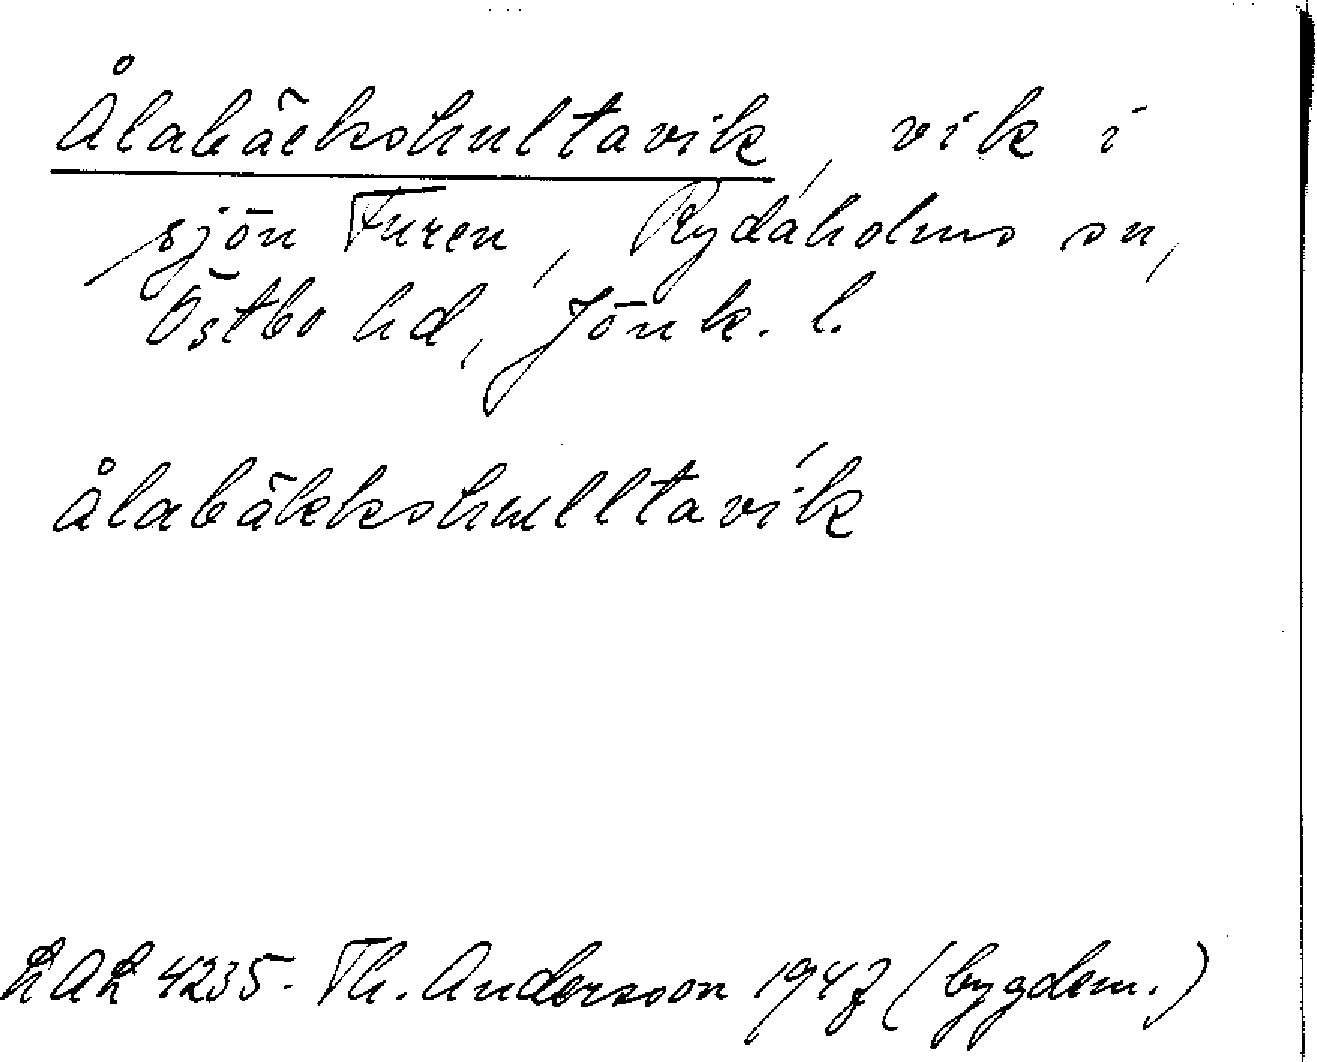 Ålabäckshultavik, vik i
sjön Furen, Rydaholms sn,
Östbo hd, Jönk. l.
ålabäkkshulltavik
LAL 4235. Th. Andersson 1947 (bygdem.)